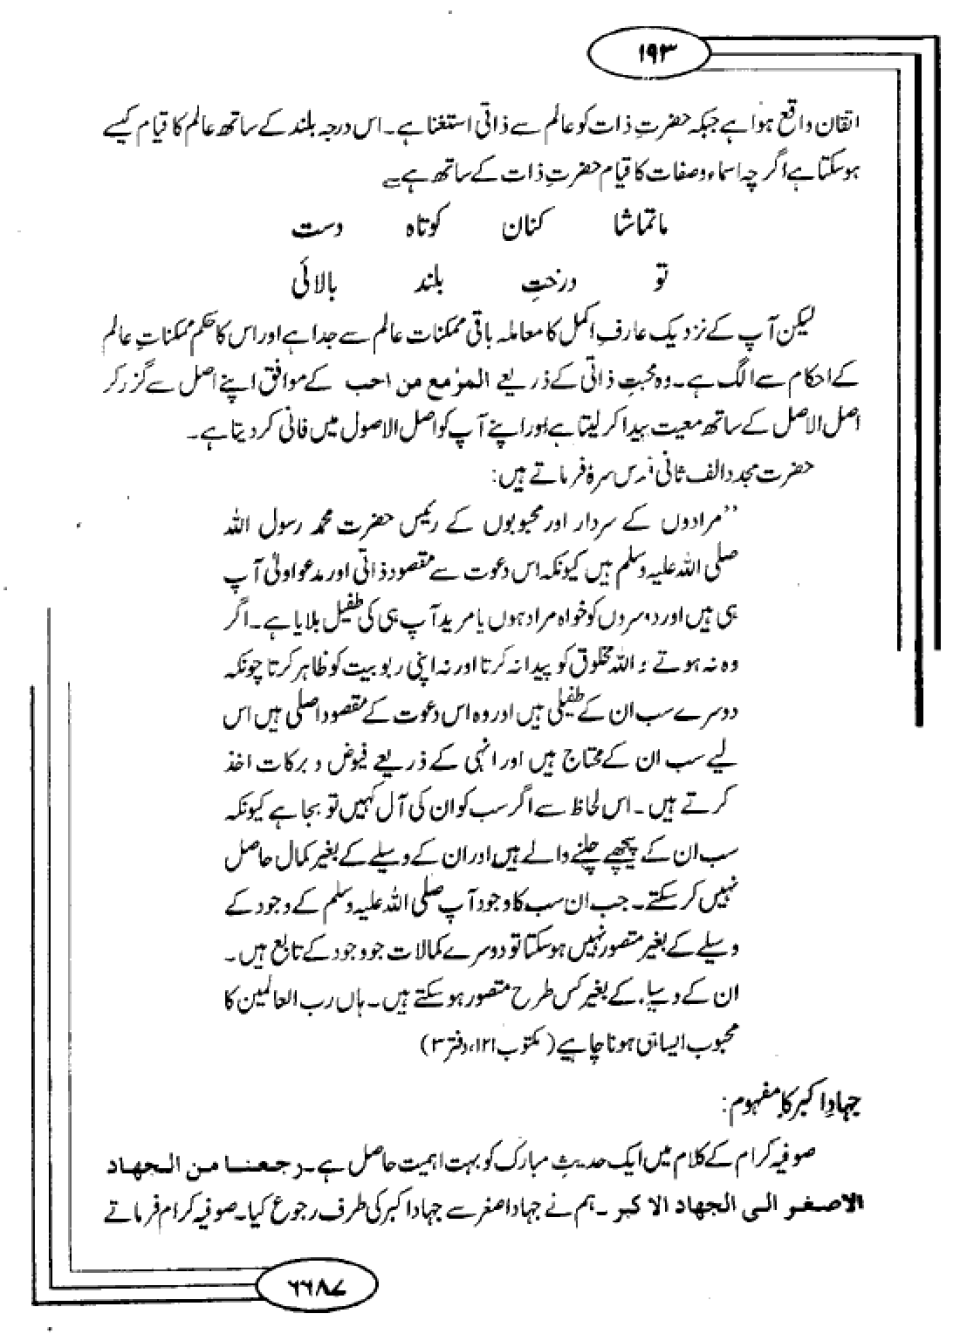 ۱۹۳
اتقان واقع ہوا ہے جبکہ حضرتِ ذات کو عالم سے ذاتی استغنا ہے۔ اس درجہ بلند کے ساتھ عالم کا قیام کیسے
ہو سکتا ہے اگرچہ اسماء و صفات کا قیام حضرتِ ذات کے ساتھ ہے۔
ما تماشا کنان کوتاہ دست
تو درختِ بلند بالائی
لیکن آپ کے نزدیک عارفِ اکمل کا معاملہ باقی ممکنات عالم سے جدا ہے اور اس کا حکم ممکناتِ عالم
کے احکام سے الگ ہے۔ وہ محبتِ ذاتی کے ذریعے المرٔ مع من احب کے موافق اپنے اصل سے گزر کر
اصل الاصل کے ساتھ معیت پیدا کر لیتا ہے اور اپنے آپ کو اصل الاصول میں فانی کر دیتا ہے۔
حضرت مجدد الف ثانی قدس سرہٗ فرماتے ہیں:
”مرادوں کے سردار اور محبوبوں کے رئیس حضرت محمد رسول اللہ
صلی اللہ علیہ وسلم ہیں کیونکہ اس دعوت سے مقصود ذاتی اور مدعو اولیٰ آپ
ہی ہیں اور دوسروں کو خواہ مراد ہوں یا مرید آپ ہی کی طفیل بلایا ہے۔ اگر
وہ نہ ہوتے تو اللہ مخلوق کو پیدا نہ کرتا اور نہ اپنی ربوبیت کو ظاہر کرتا چونکہ
دوسرے سب ان کے طفیلی ہیں اور وہ اس دعوت کے مقصود اصلی ہیں اس
لیے سب ان کے محتاج ہیں اور انہی کے ذریعے فیوض و برکات اخذ
کرتے ہیں۔ اس لحاظ سے اگر سب کو ان کی آل کہیں تو بجا ہے کیونکہ
سب ان کے پیچھے چلنے والے ہیں اور ان کے وسیلے کے بغیر کمال حاصل
نہیں کر سکتے۔ جب ان سب کا وجود آپ صلی اللہ علیہ وسلم کے وجود کے
وسیلے کے بغیر متصور نہیں ہو سکتا تو دوسرے کمالات جو وجود کے تابع ہیں۔
ان کے وسیلہ کے بغیر کس طرح متصور ہو سکتے ہیں۔ ہاں رب العالمین کا
محبوب ایسا ہی ہونا چاہیے (مکتوب ۱۲۱، دفتر ۳)
جہادِ اکبر کا مفہوم:
صوفیہ کرام کے کلام میں ایک حدیثِ مبارک کو بہت اہمیت حاصل ہے۔ رجعنا من الجهاد
الاصغر الی الجهاد الاکبر۔ ہم نے جہاد اصغر سے جہاد اکبر کی طرف رجوع کیا۔ صوفیہ کرام فرماتے
۷۸۶۶